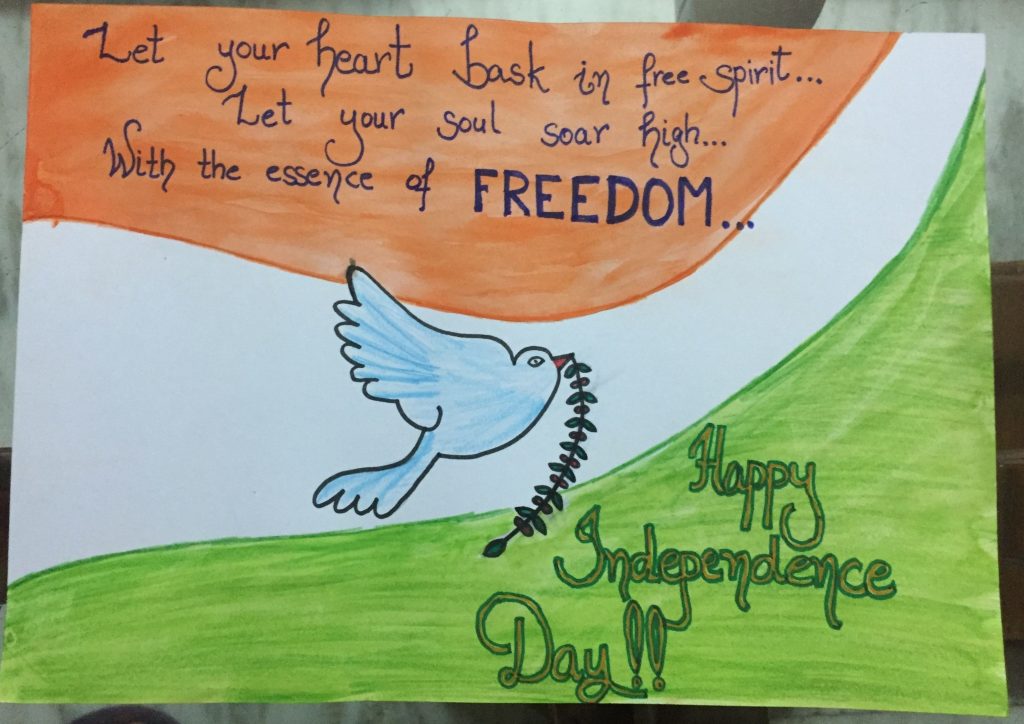 Let your heart bask in free spirit...
Let your soul soar high...
With the essence of FREEDOM...
Happy
Independence
Day!!